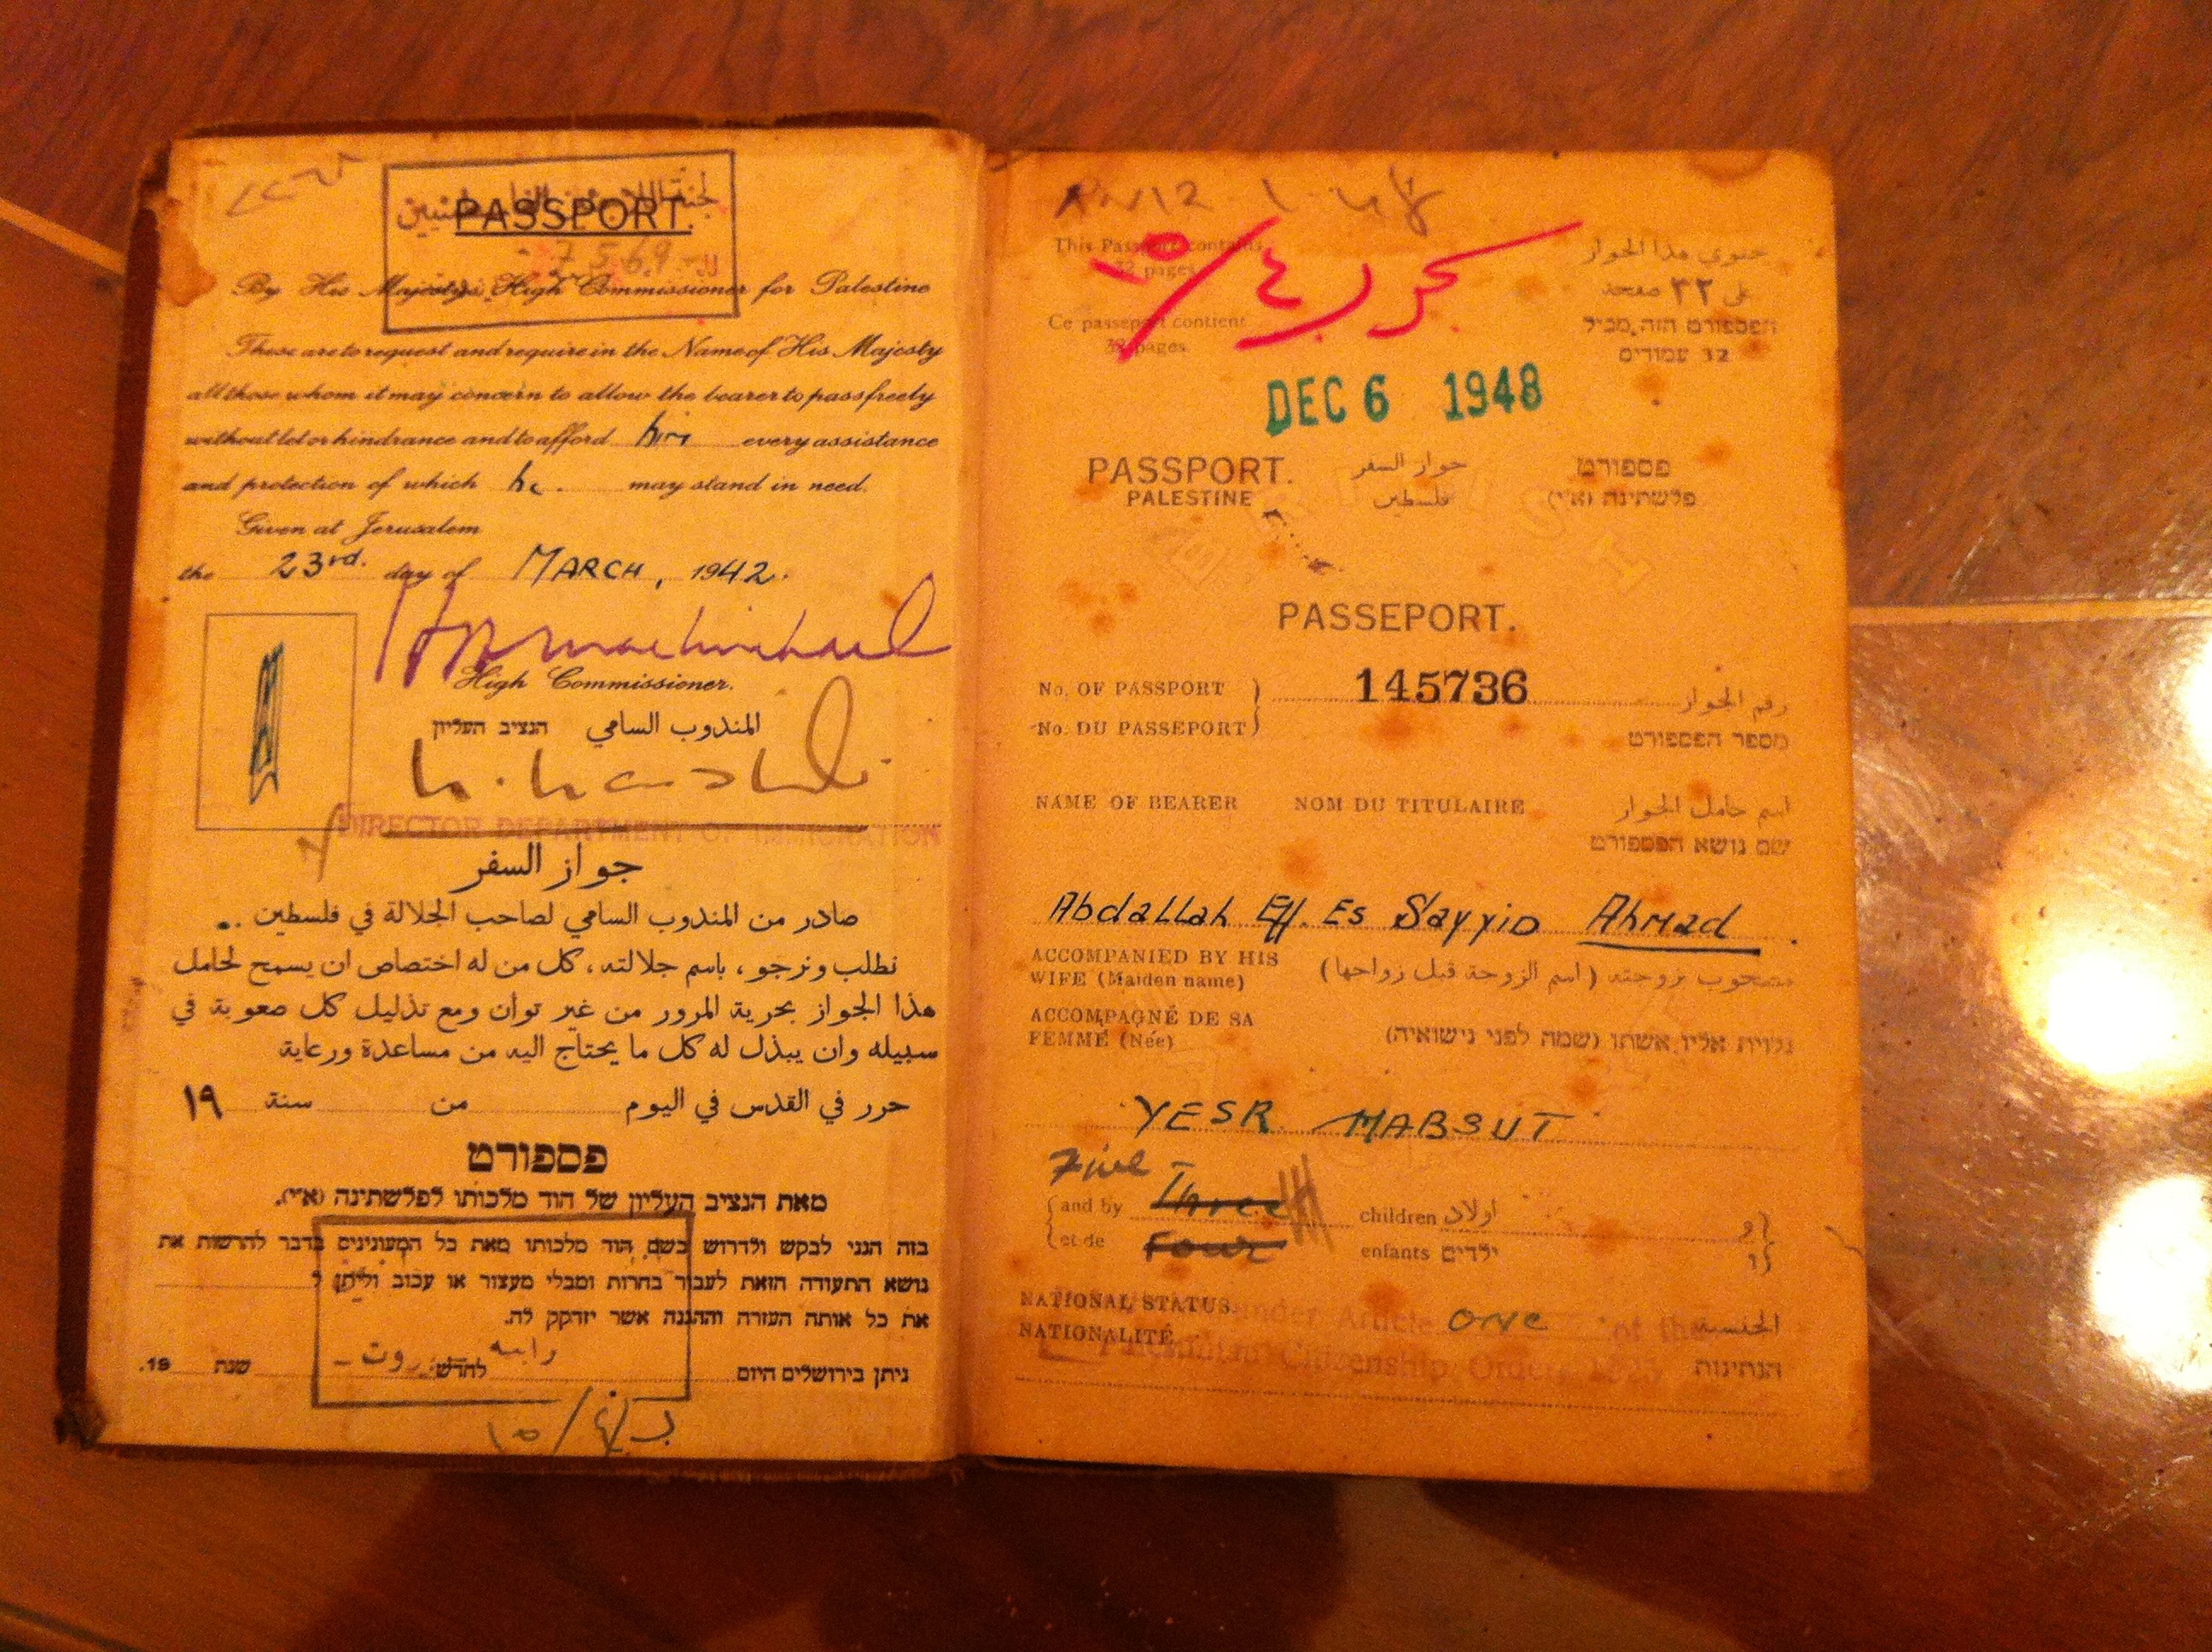 PASSPORT.
7569
By His Majesty's High Commissioner for Palestine
These are to request and require in the Name of His Majesty
all those whom it may concern to allow the bearer to pass freely
without let or hindrance and to afford him every assistance
and protection of which he may stand in need.
Given at Jerusalem
the 23rd. day of MARCH, 1942.
High Commissioner.
הנציב העליון المندوب السامي
DIRECTOR DEPARTMENT OF IMMIGRATION
جواز السفر
صادر من المندوب السامي لصاحب الجلالة في فلسطين
نطلب ونرجو، باسم جلالته، كل من له اختصاص ان يسمح لحامل
هذا الجواز بحرية المرور من غير توان ومع تذليل كل صعوبة في
سبيله وان يبذل له كل ما يحتاج اليه من مساعدة ورعاية
حرر في القدس في اليوم من سنة ١٩
פספורט
מאת הנציב העליון של הוד מלכותו לפלשתינה (א״י).
בזה הנני לבקש ולדרוש בשם הוד מלכותו מאת כל המעונינים בדבר להרשות את
נושא התעודה הזאת לעבור בחרות ומבלי מעצור או עכוב וליתן ל
את כל אותה העזרה וההגנה אשר יזדקק לה.
ניתן בירושלים היום לחדש שנת 19.
١٥/٤/
This Passport contains
32 pages
Ce passeport contient
32 pages
يحتوي هذا الجواز
على ٣٢ صفحة
הפספורט הזה מכיל
32 עמודים
DEC 6 1948
PASSPORT. جواز السفر פספורט
PALESTINE فلسطين פלשתינה (א״י)
PASSEPORT.
No. OF PASSPORT 145736 رقم الجواز
No. DU PASSEPORT מספר הפספורט
NAME OF BEARER NOM DU TITULAIRE اسم حامل الجواز
שם נושא הפספורט
Abdallah Eff. Es Sayyid Ahmad.
ACCOMPANIED BY HIS
WIFE (Maiden name)
مصحوب بزوجته (اسم الزوجة قبل زواجها)
ACCOMPAGNÉ DE SA
FEMME (Née)
נלוית אליו אשתו (שמה לפני נישואיה)
YESR MABSUT
Five
and by Three children اولاد و
et de Four enfants ילדים ו
NATIONAL STATUS. under Article one of the الجنسية
NATIONALITÉ Palestinian Citizenship Order, 1925 הנתינות